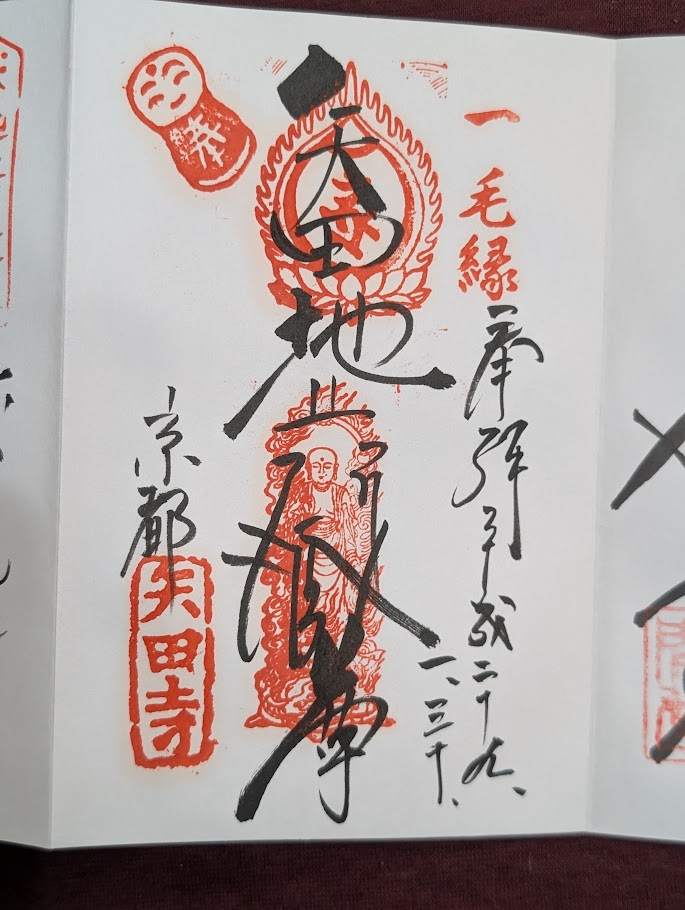 一毛縁
奉拝 平成二十九、
一、三十、
矢田地蔵尊
京都
矢田寺